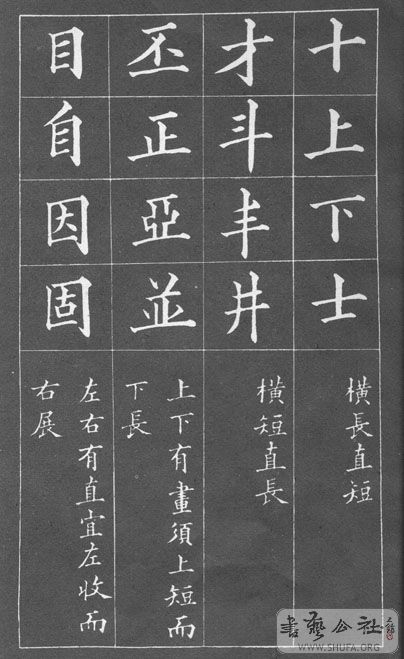 十上下士
橫長直短
才斗丰井
橫短直長
丕正亞並
上下有畫須上短而
下長
目自因固
左右有直宜左收而
右展
書藝公社
WWW.SHUFA.ORG